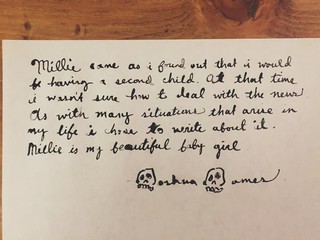 Millie came as i found out that i would
be having a second child. At that time
i wasn't sure how to deal with the news
As with many situations that arise in
my life i chose to write about it.
Millie is my beautiful baby girl
oshua ames